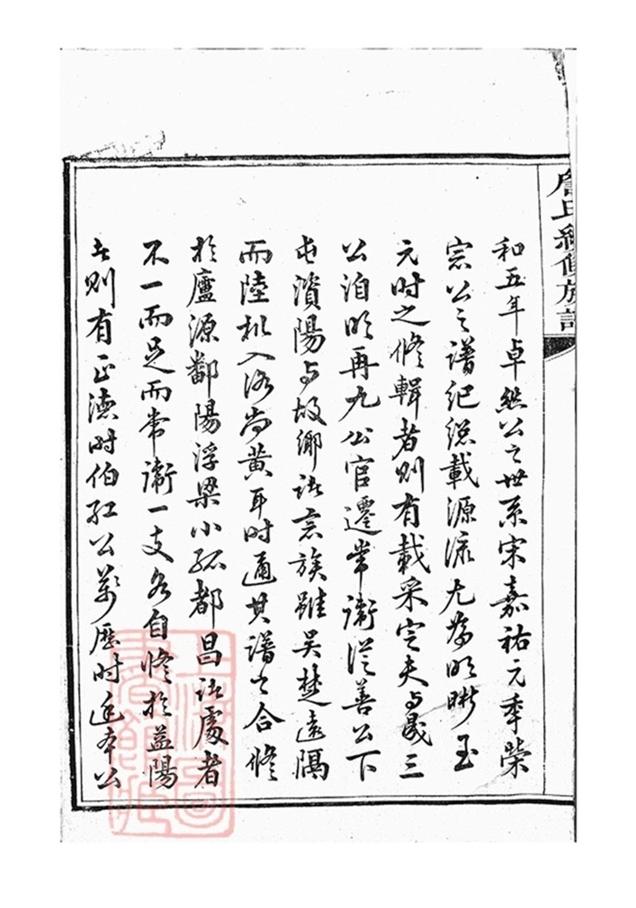 詹氏續修族譜
和五年卓然公之世系宋嘉祐元季榮
宗公之譜紀總載源流尤為明晰至
元時之修輯者則有載采定夫与晟三
公洎明再九公官遷常衛從善公下
屯資陽与故鄉諸宗族雖吳楚遠隔
而陸機入洛尚黃耳時通其譜之合修
於廬源鄱陽浮梁小孤都昌諸處者
不一而足而常衛一支各自修於益陽
者則有正德時伯紅公萬歷時廷本公